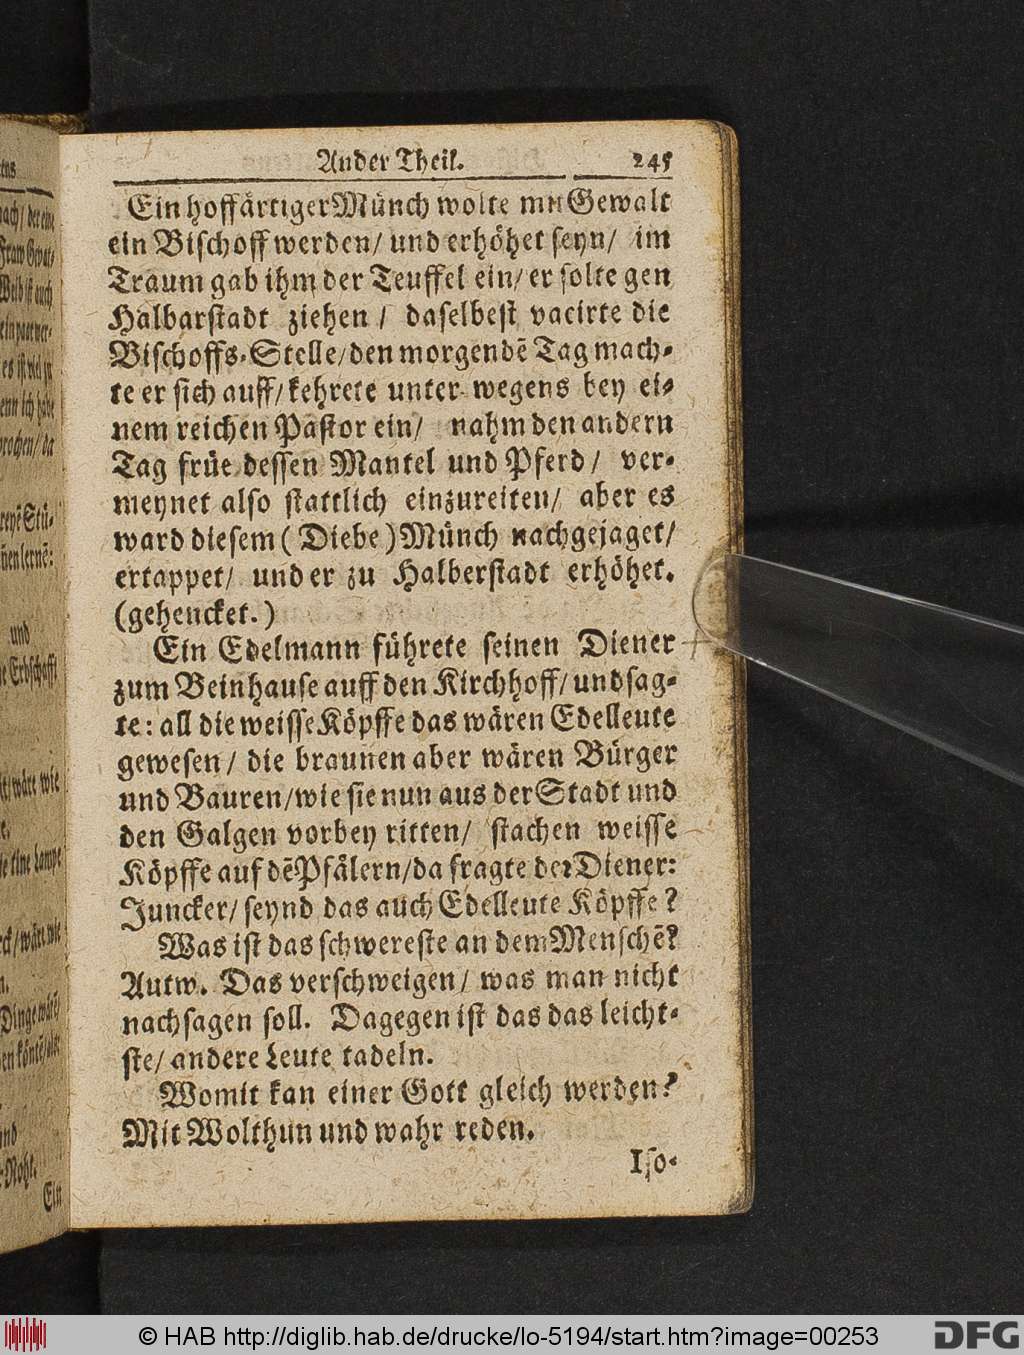 Ander Theil. 245
Ein hoffärtiger Münch wolte mit Gewalt
ein Bischoff werden/ und erhöhet seyn/ im
Traum gab ihm der Teuffel ein/ er solte gen
Halbarstadt ziehen / daselbest vacirte die
Bischoffs-Stelle/ den morgendē Tag mach-
te er sich auff/ kehrete unter wegens bey ei-
nem reichen Pastor ein/ nahm den andern
Tag früe dessen Mantel und Pferd/ ver-
meynet also stattlich einzureiten/ aber es
ward diesem ( Diebe ) Münch nachgejaget/
ertappet/ und er zu Halberstadt erhöhet.
(gehencket.)
Ein Edelmann führete seinen Diener
zum Beinhause auff den Kirchhoff/ und sag-
te: all die weisse Köpffe das wären Edelleute
gewesen/ die braunen aber wären Bürger
und Bauren/ wie sie nun aus der Stadt und
den Galgen vorbey ritten/ stachen weisse
Köpffe auf dē Pfälern/ da fragte der Diener:
Juncker/ seynd das auch Edelleute Köpffe?
Was ist das schwereste an dem Menschē?
Antw. Das verschweigen/ was man nicht
nachsagen soll. Dagegen ist das das leicht-
ste/ andere Leute tadeln.
Womit kan einer Gott gleich werden?
Mit Wolthun und wahr reden.
Iso-
und
Ein
© HAB http://diglib.hab.de/drucke/lo-5194/start.htm?image=00253
DFG